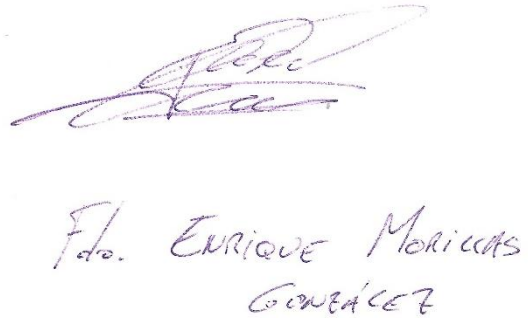 Fdo. ENRIQUE MORILLAS
GONZÁLEZ